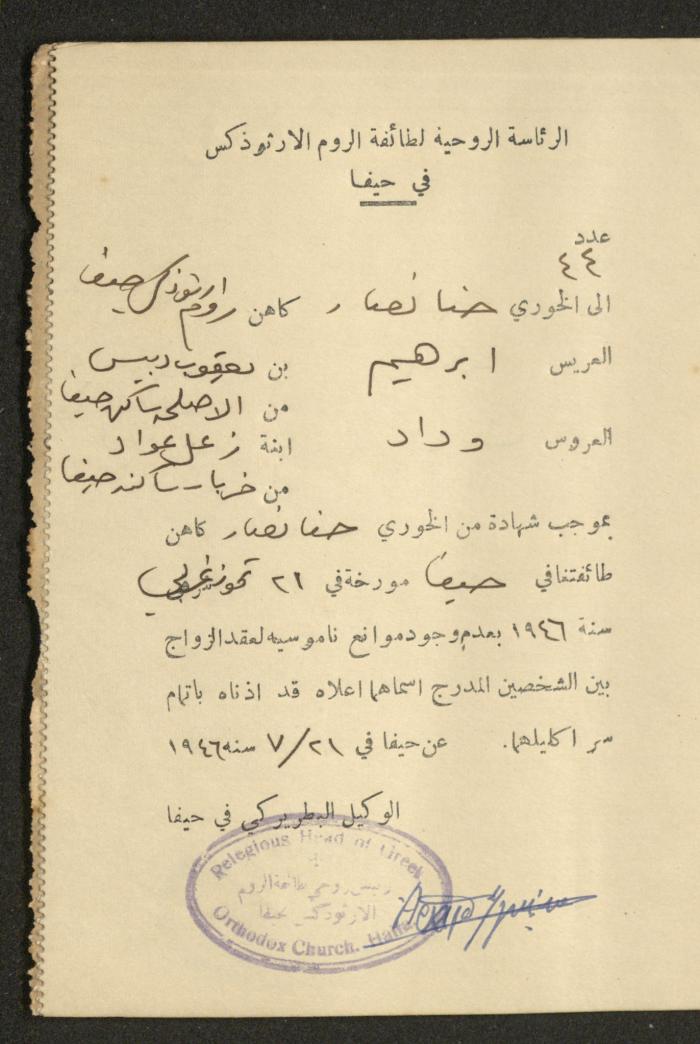 الرئاسة الروحية لطائفة الروم الارثوذكس
في حيفا
عدد
٤٤
الى الخوري حنا نصار كاهن روم ارثوذكس حيفا
العريس ابرهيم بن يعقوب دبيس
من الاصل ساكن حيفا
العروس وداد ابنة زعل عواد
من ساكنه حيفا
بموجب شهادة من الخوري حنا نصار كاهن
طائفتنا في حيفا مورخة في ٢١ تموز غربي
سنة ١٩٤٦ بعدم وجود موانع ناموسيه لعقد الزواج
بين الشخصين المدرج اسماهما اعلاه قد اذناه باتمام
سر اكليلهما. عن حيفا في ٢١/٧ سنه ١٩٤٦
الوكيل البطريركي في حيفا
Relegious Head of Greek
رئيس روحي طائفة الروم
الارثوذكس بحيفا
Orthodox Church. Haifa